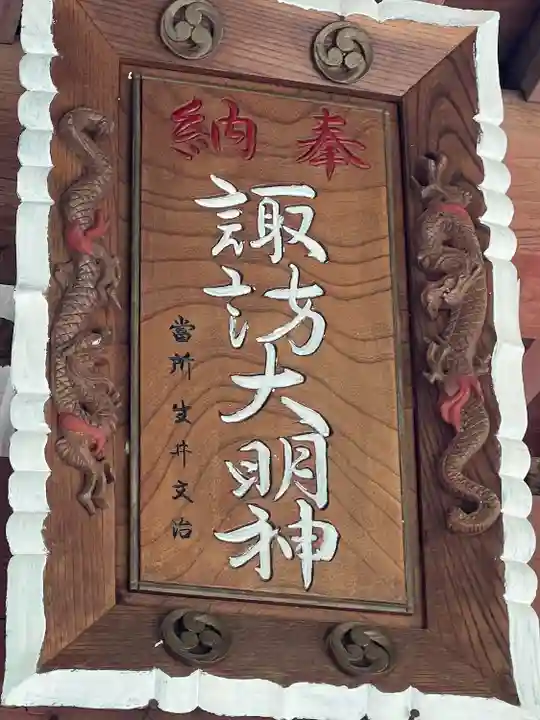 奉納
諏訪大明神
當所生井文治